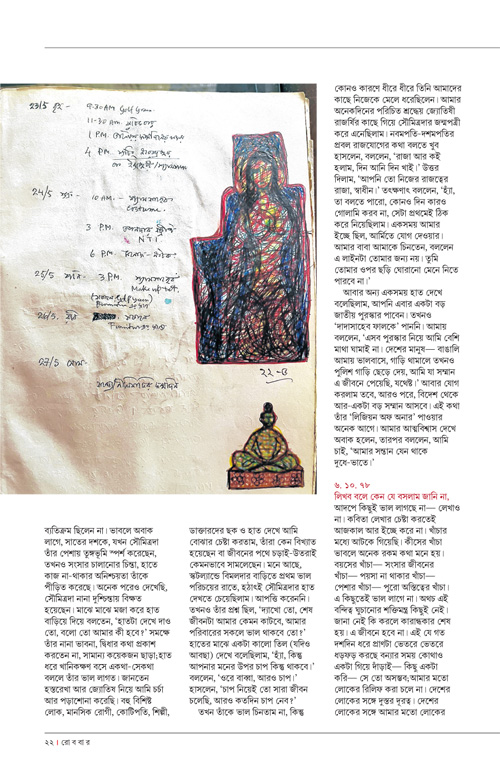 23/5
9-30 AM
11-30 AM.
1 P.M.
4 P.M.
24/5
10 AM. -
3 P.M.
NTI
6 P.M.
25/5
3 P.M.
26/5
27/5
২২-৪
ব্যতিক্রম ছিলেন না। ভাবলে অবাক
লাগে, সাতের দশকে, যখন সৌমিত্রদা
তাঁর পেশায় তুঙ্গভূমি স্পর্শ করেছেন,
তখনও সংসার চালানোর চিন্তা, হাতে
কাজ না-থাকার অনিশ্চয়তা তাঁকে
পীড়িত করেছে। অনেক পরেও দেখেছি,
সৌমিত্রদা নানা দুশ্চিন্তায় বিক্ষত
হয়েছেন। মাঝে মাঝে মজা করে হাত
বাড়িয়ে দিয়ে বলতেন, 'হাতটা দেখে দাও
তো, বলো তো আমার কী হবে?' সমক্ষে
তাঁর নানা ভাবনা, দ্বিধার কথা প্রকাশ
করতেন না, সামান্য কয়েকজন ছাড়া; হাত
ধরে খানিকক্ষণ বসে একথা-সেকথা
বললে তাঁর ভাল লাগত। জানতেন
হস্তরেখা আর জ্যোতিষ নিয়ে আমি চর্চা
আর পড়াশোনা করেছি। বহু বিশিষ্ট
লোক, মানসিক রোগী, কোটিপতি, শিল্পী,
ডাক্তারদের ছক ও হাত দেখে আমি
বোঝার চেষ্টা করতাম, তাঁরা কেন বিখ্যাত
হয়েছেন বা জীবনের পথে চড়াই-উতরাই
কেমনভাবে সামলেছেন। মনে আছে,
স্কটল্যান্ডে বিমলদার বাড়িতে প্রথম ভাল
পরিচয়ের রাতে, হঠাৎই সৌমিত্রদার হাত
দেখতে চেয়েছিলাম। আপত্তি করেননি।
তখনও তাঁর প্রশ্ন ছিল, 'দ্যাখো তো, শেষ
জীবনটা আমার কেমন কাটবে, আমার
পরিবারের সকলে ভাল থাকবে তো?'
হাতের মাঝে একটা কালো তিল (যদিও
আবছা) দেখে বলেছিলাম, 'হ্যাঁ, কিন্তু
আপনার মনের উপর চাপ কিন্তু থাকবে।'
বললেন, 'ওরে বাব্বা, আরও চাপ।'
হাসলেন, 'চাপ নিয়েই তো সারা জীবন
চলেছি, আরও কতদিন চাপ নেব?'
তখন তাঁকে ভাল চিনতাম না, কিন্তু
কোনও কারণে ধীরে ধীরে তিনি আমাদের
কাছে নিজেকে মেলে ধরেছিলেন। আমার
অনেকদিনের পরিচিত শ্রদ্ধেয় জ্যোতিষী
রাজর্ষির কাছে গিয়ে সৌমিত্রদার জন্মপত্রী
করে এনেছিলাম। নবমপতি-দশমপতির
প্রবল রাজযোগের কথা বলতে খুব
হাসলেন, বললেন, 'রাজা আর কই
হলাম, দিন আনি দিন খাই।' উত্তর
দিলাম, 'আপনি তো নিজের রাজত্বের
রাজা, স্বাধীন।' তৎক্ষণাৎ বললেন, 'হ্যাঁ,
তা বলতে পারো, কোনও দিন কারও
গোলামি করব না, সেটা প্রথমেই ঠিক
করে নিয়েছিলাম। একসময় আমার
ইচ্ছে ছিল, আর্মিতে যোগ দেওয়ার।
আমার বাবা আমাকে চিনতেন, বললেন
এ লাইনটা তোমার জন্য নয়। তুমি
তোমার ওপর ছড়ি ঘোরানো মেনে নিতে
পারবে না।'
আবার অন্য একসময় হাত দেখে
বলেছিলাম, আপনি এবার একটা বড়
জাতীয় পুরস্কার পাবেন। তখনও
'দাদাসাহেব ফালকে' পাননি। আমায়
বললেন, 'এসব পুরস্কার নিয়ে আমি বেশি
মাথা ঘামাই না। দেশের মানুষ— বাঙালি
আমায় ভালবাসে, গাড়ি থামালে তখনও
পুলিশ গাড়ি ছেড়ে দেয়, আমি যা সম্মান
এ জীবনে পেয়েছি, যথেষ্ট।' আবার যোগ
করলাম তবে, আরও পরে, বিদেশ থেকে
আর-একটা বড় সম্মান আসবে। এই কথা
তাঁর 'লিজিয়ন অফ অনার' পাওয়ার
অনেক আগে। আমার আত্মবিশ্বাস দেখে
অবাক হলেন, তারপর বললেন, আমি
চাই, 'আমার সন্তান যেন থাকে
দুধে-ভাতে।'
৬. ১০. ৭৮
লিখব বলে কেন যে বসলাম জানি না,
আদপে কিছুই ভাল লাগছে না— লেখাও
না। কবিতা লেখার চেষ্টা করতেই
আজকাল আর ইচ্ছে করে না। খাঁচার
মধ্যে আটকে গিয়েছি। কীসের খাঁচা
ভাবলে অনেক রকম কথা মনে হয়।
বয়সের খাঁচা— সংসার জীবনের
খাঁচা— পয়সা না থাকার খাঁচা—
পেশার খাঁচা— পুরো অস্তিত্বের খাঁচা।
এ কিছুতেই ভাল লাগে না। অথচ এই
বন্দিত্ব ঘুচানোর শক্তিমন্ত্র কিছুই নেই।
জানা নেই কি করলে কারাঙ্ককার শেষ
হয়। এ জীবনে হবে না। এই যে গত
দশদিন ধরে প্রাণটা ভেতরে ভেতরে
ধড়ফড় করছে বন্যার সময় কোথাও
একটা গিয়ে দাঁড়াই— কিছু একটা
করি— সে তো অসম্ভব; আমার মতো
লোকের রিলিফ করা চলে না। দেশের
লোকের সঙ্গে দুস্তর দূরত্ব। দেশের
লোকের সঙ্গে আমার মতো লোকের
২২ । রো ব বা র